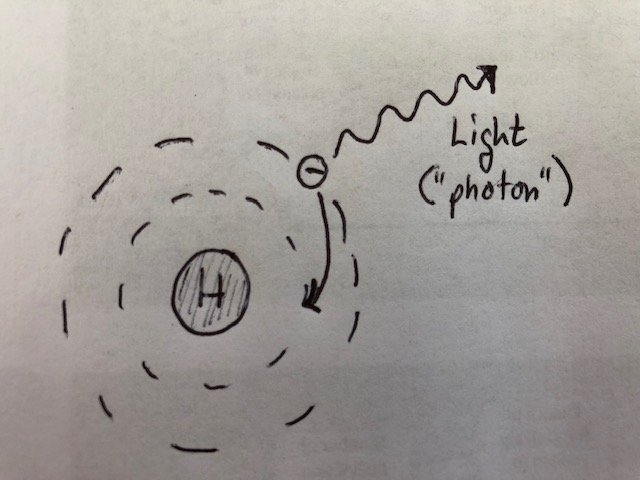 H
-
Light
("photon")